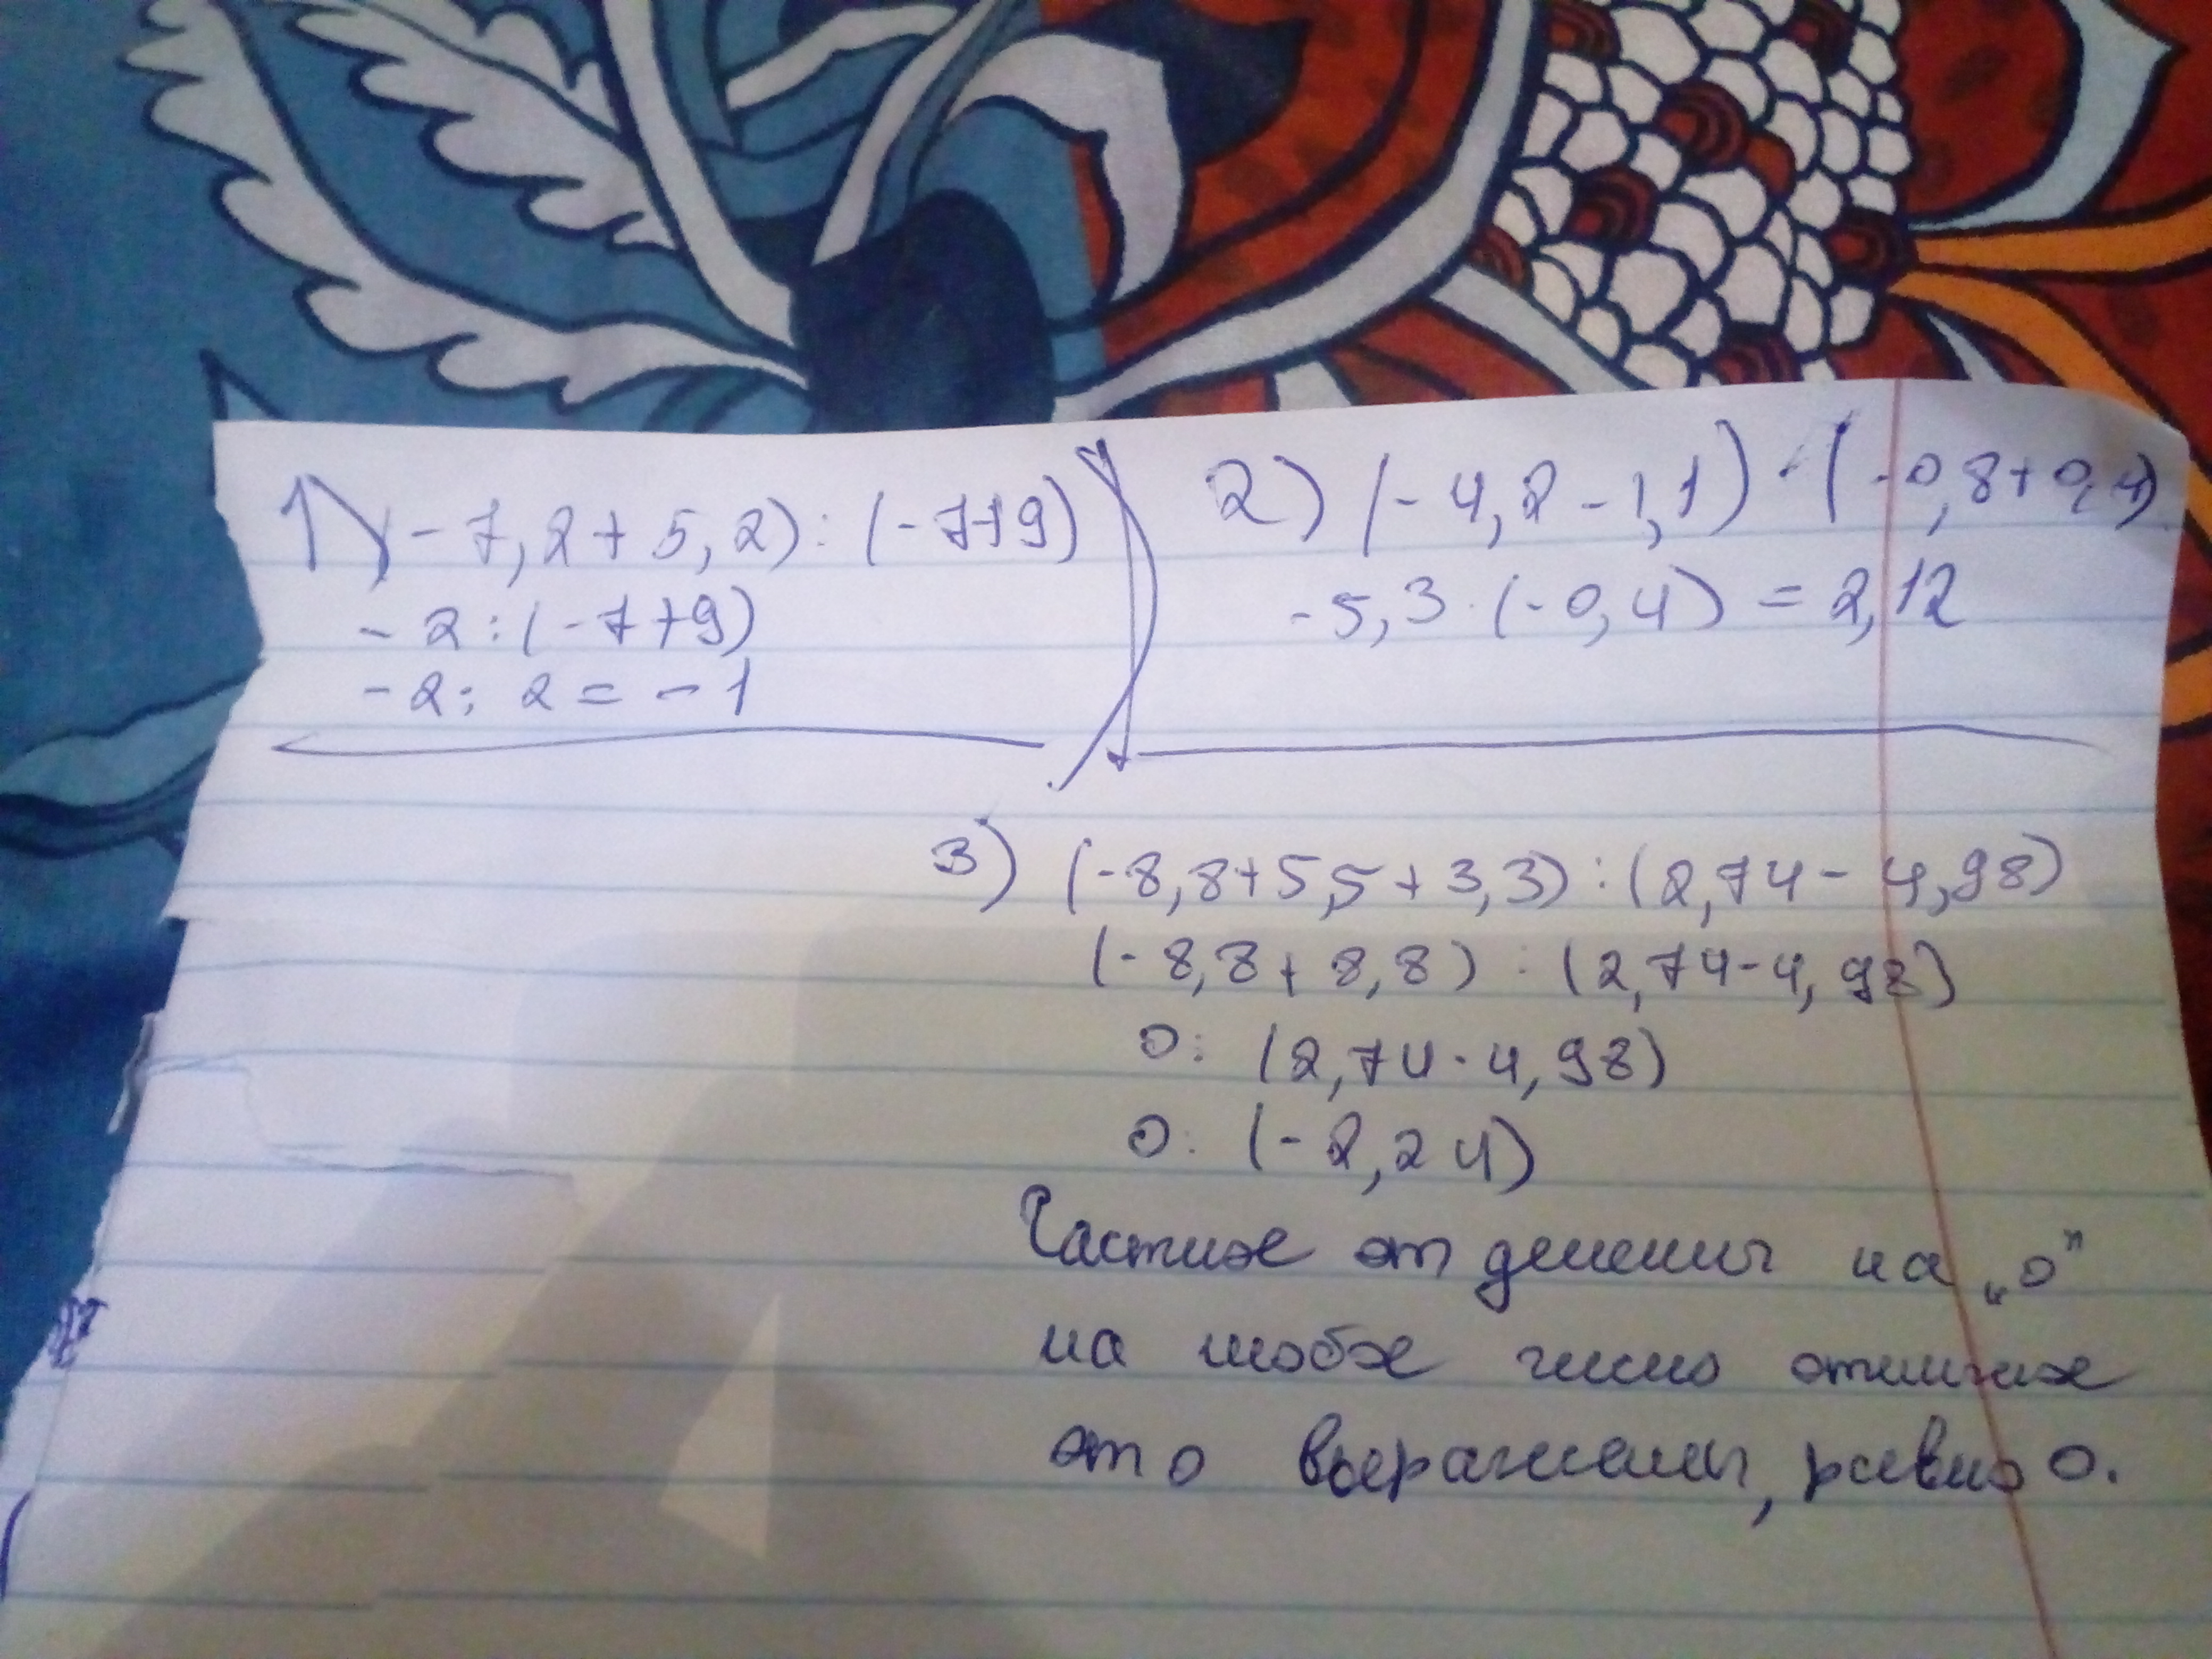 1) (-7,2+5,2):(-7+9)
-2:(-7+9)
-2:2=-1
2) (-4,2-1,1)·(-0,8+0,4)
-5,3·(-0,4)=2,12
3) (-8,8+5,5+3,3):(2,74-4,98)
(-8,8+8,8):(2,74-4,98)
0:(2,74-4,98)
0:(-2,24)
Частное от деления на „0”
на любое число отличное
от 0 выражения, равно 0.